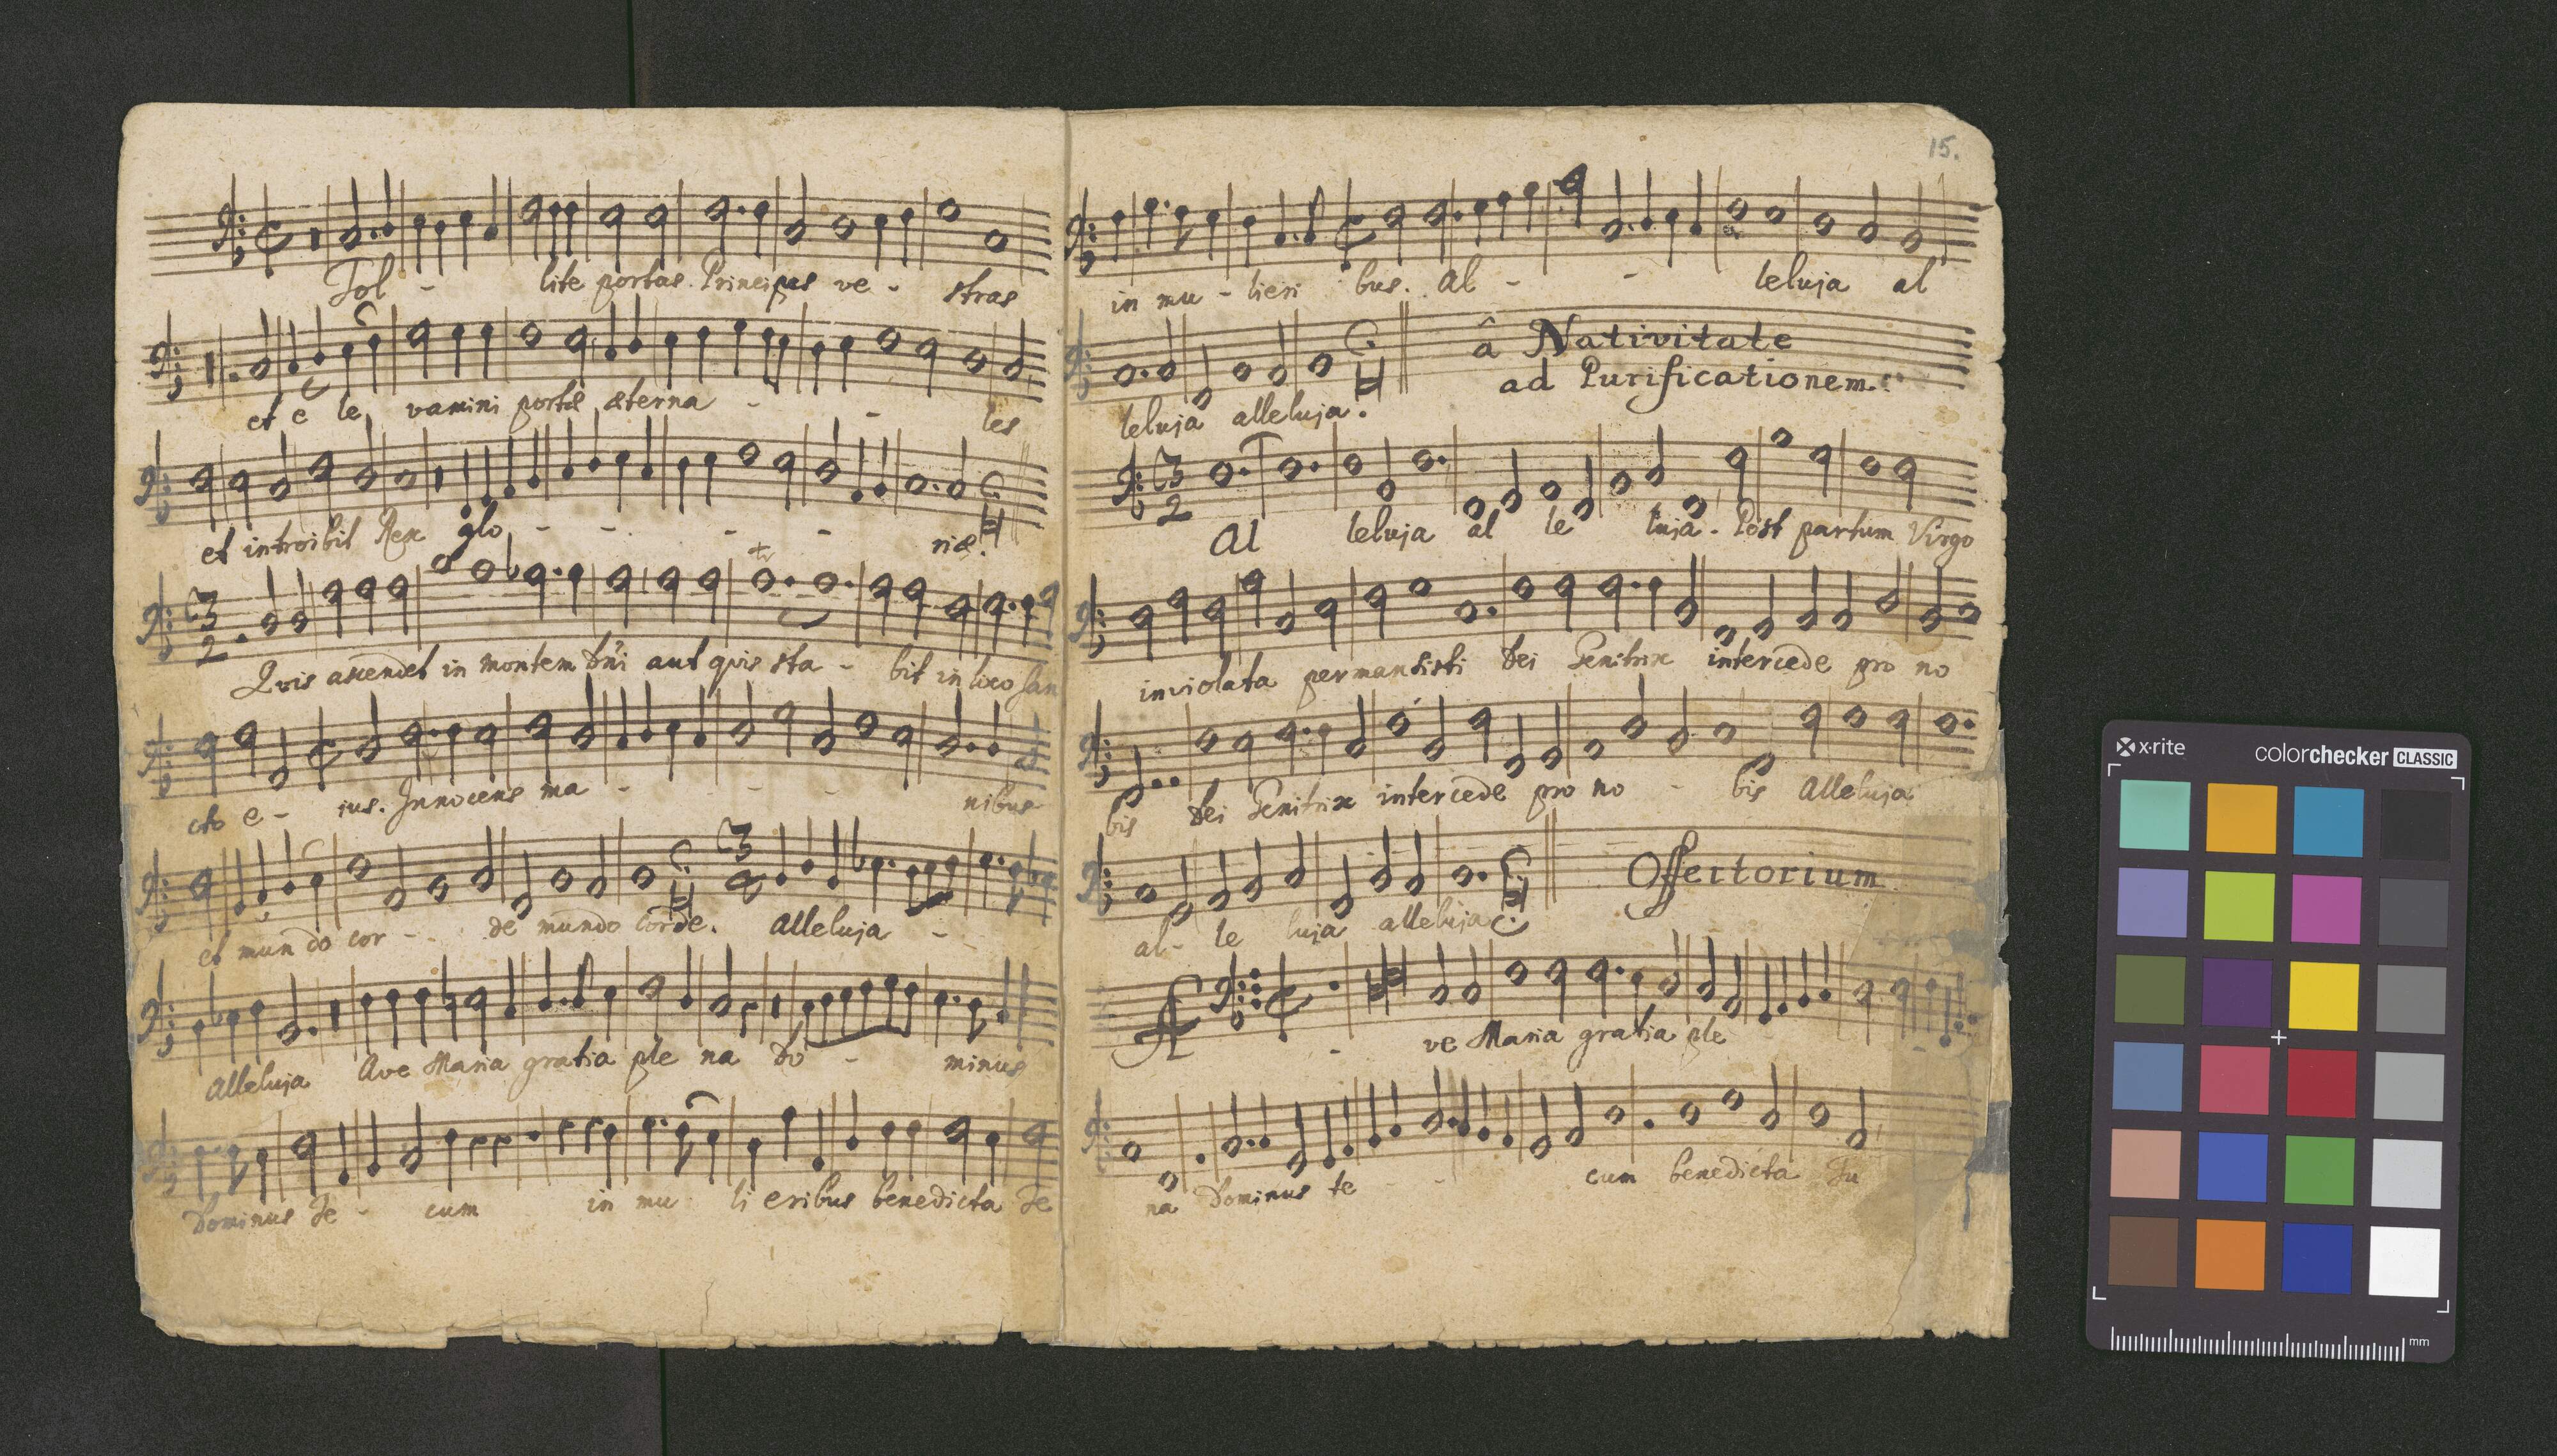 Tol - lite portas Principes ve - stras
et e le vamini portæ æterna - - les
et introibit Rex glo - - - - riæ.
3
2
tr
Qvis ascendet in montem dni aut qvis sta - bit in loco San
cto e - ius. Innocens ma - - - - nibus
3
et mundo cor - - de mundo corde. Alleluja - -
Alleluja Ave Maria gratia ple na do - minus
Dominus Te - cum in mu li eribus benedicta Te
15.
in mu - lieri bus. Al - - leluja al
â Nativitate
ad Purificationem.
leluja alleluja.
3
2
Al leluja al le luja. Post partum Virgo
inviolata permansisti dei Genitrix intercede pro no
bis dei Genitrix intercede pro no - bis Alleluja
Offertorium
al - le luja alleluja
A - ve Maria gratia ple -
na Dominus te - - cum benedicta Tu
x·rite
colorchecker CLASSIC
mm